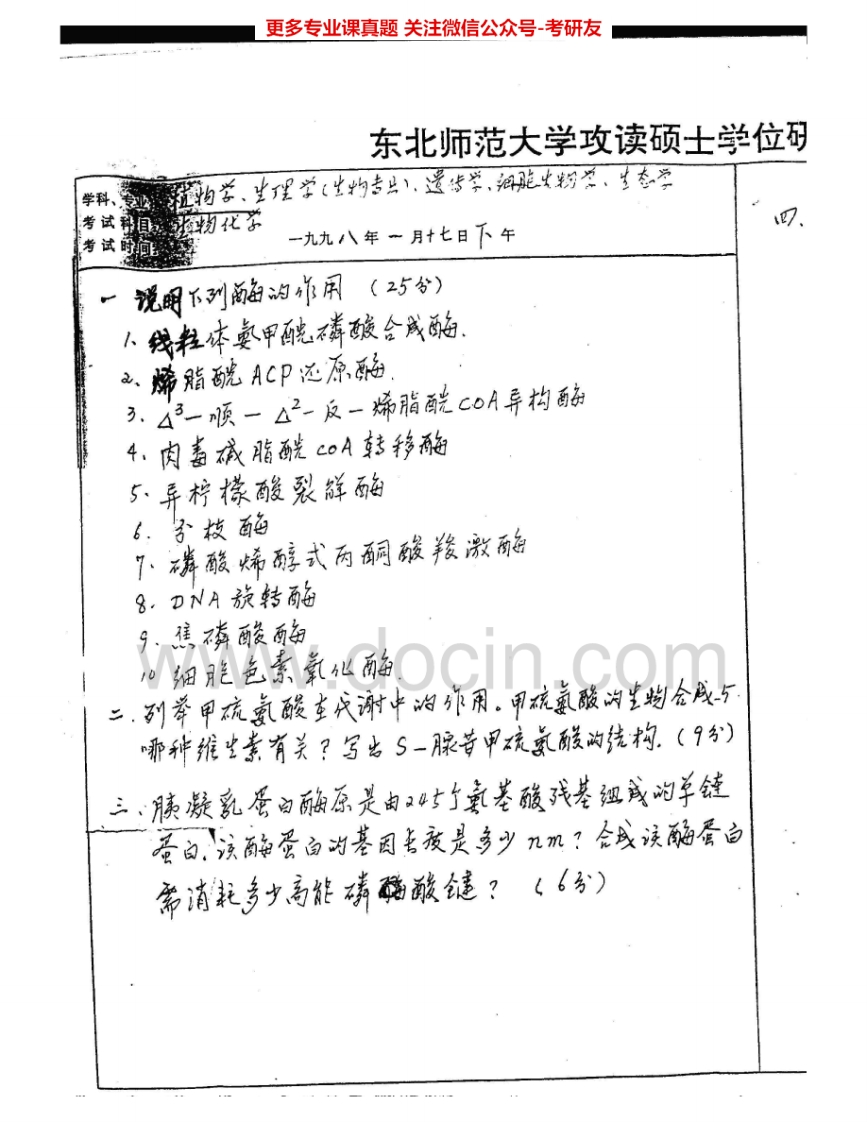 更多专业课真题 关注微信公众号-考研友
东北师范大学攻读硕士学位研
学科、专业 植物学、生理学(生物专业)、遗传学、细胞生物学、生态学
考试科目 生物化学
考试时间 一九九八年一月十七日下午
四、
一 说明下列酶的作用 (25分)
1、线粒体氨甲酰磷酸合成酶.
2、烯脂酰ACP还原酶.
3、△³—顺—△²—反—烯脂酰COA异构酶
4、肉毒碱脂酰COA转移酶
5、异柠檬酸裂解酶
6、分枝酶
7、磷酸烯醇式丙酮酸羧激酶
8、DNA旋转酶
9、焦磷酸酶
10 细胞色素氧化酶.
www.docin.com
二、列举甲硫氨酸在代谢中的作用。甲硫氨酸的生物合成与
哪种维生素有关?写出S-腺苷甲硫氨酸的结构.(9分)
三、胰凝乳蛋白酶原是由245个氨基酸残基组成的单链
蛋白、该酶蛋白的基因长度是多少nm?合成该酶蛋白
需消耗多少高能磷酸键?(6分)